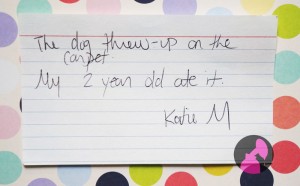 The dog threw-up on the
carpet.
My 2 year old ate it.
Katie M